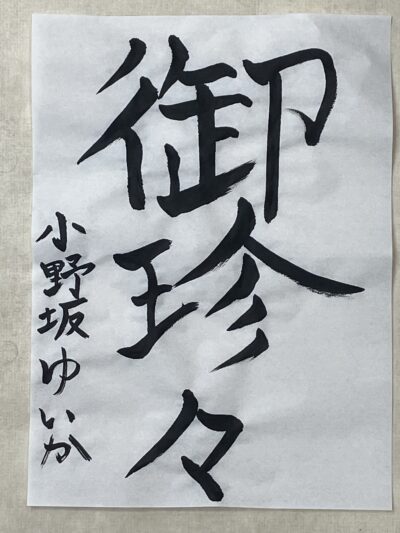 御珍々
小野坂ゆいか